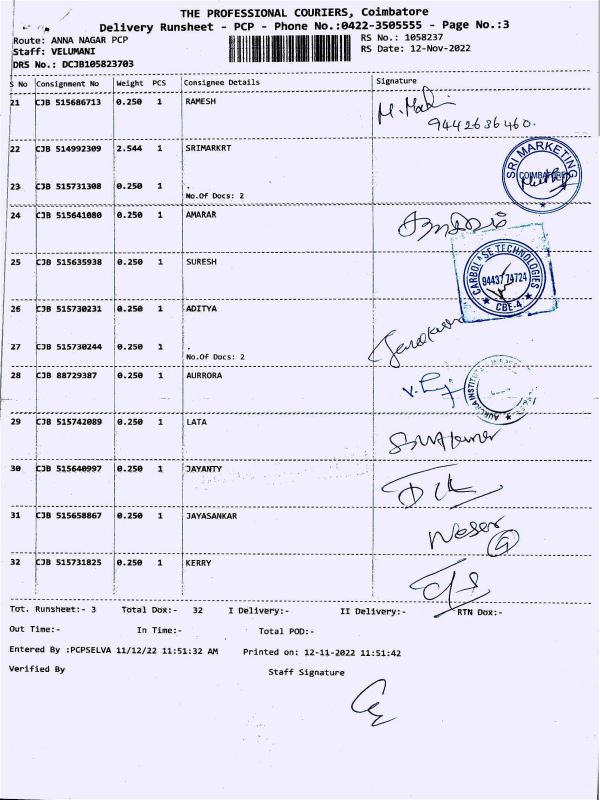 THE PROFESSIONAL COURIERS, Coimbatore
Delivery Runsheet - PCP - Phone No.:0422-3505555 - Page No.:3
Route: ANNA NAGAR PCP
RS No.: 1058237
Staff: VELUMANI
RS Date: 12-Nov-2022
DRS No.: DCJB105823703
S No Consignment No Weight PCS Consignee Details Signature
21 CJB 515686713 0.250 1 RAMESH
9442636460.
22 CJB 514992309 2.544 1 SRIMARKRT
SRI MARKETING
COIMBATORE
23 CJB 515731308 0.250 1 .
No.Of Docs: 2
24 CJB 515641080 0.250 1 AMARAR
25 CJB 515635938 0.250 1 SURESH
CARBOLASE TECHNOLOGIES
94437 74724
CBE-4
26 CJB 515730231 0.250 1 ADITYA
27 CJB 515730244 0.250 1 .
No.Of Docs: 2
28 CJB 88729387 0.250 1 AURRORA
29 CJB 515742089 0.250 1 LATA
30 CJB 515640997 0.250 1 JAYANTY
31 CJB 515658867 0.250 1 JAYASANKAR
32 CJB 515731825 0.250 1 KERRY
Tot. Runsheet:- 3 Total Dox:- 32 I Delivery:- II Delivery:- RTN Dox:-
Out Time:- In Time:- Total POD:-
Entered By :PCPSELVA 11/12/22 11:51:32 AM Printed on: 12-11-2022 11:51:42
Verified By Staff Signature